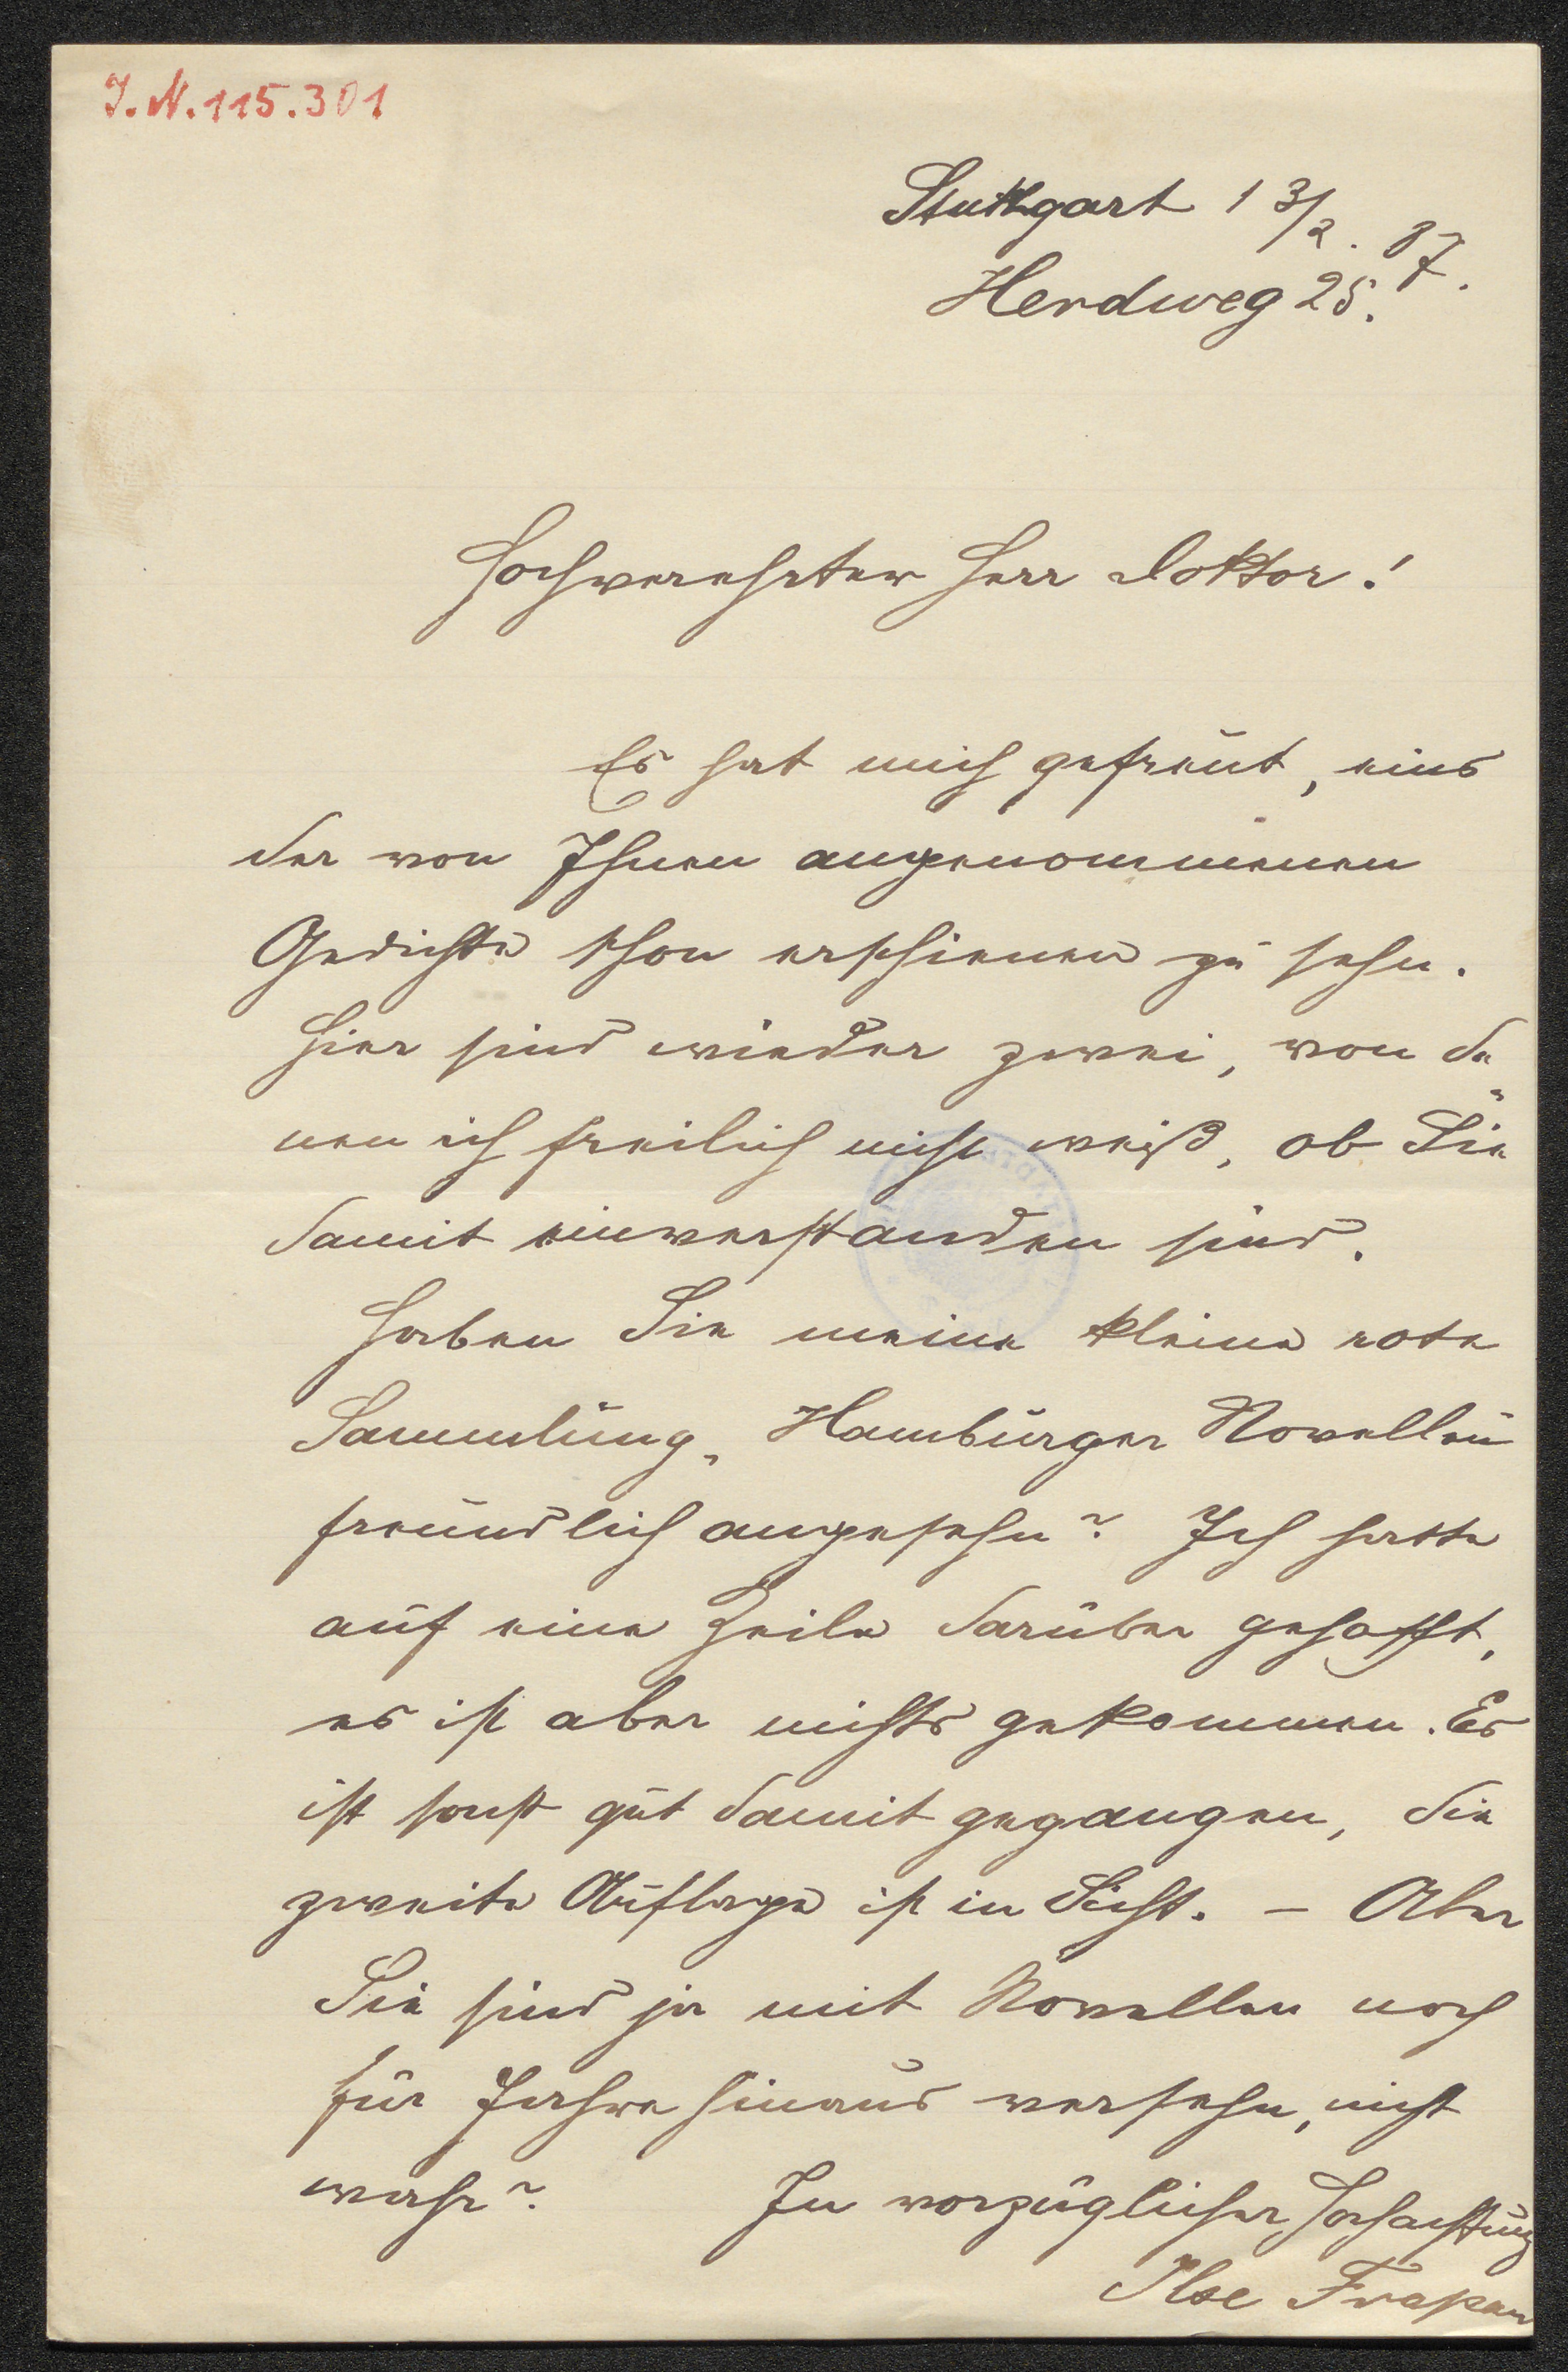 J.N.115.301
Stuttgart 13/2. 87.
Herdweg 25.
Hochverehrter Herr Doktor!
Es hat mich gefreut, eins
der von Ihnen angenommenen
Gedichte schon erschienen zu sehn.
Hier sind wieder zwei, von de„
nen ich freilich nicht weiß, ob Sie
damit einverstanden sind.
Haben Sie meine kleine rote
Sammlung „Hamburger Novellen
freundlich angesehn? Ich hatte
auf eine Zeile darüber gehofft,
es ist aber nichts gekommen. Es
ist sonst gut damit gegangen, die
zweite Auflage ist in Sicht. – Aber
Sie sind ja mit Novellen noch
für Jahre hinaus versehn, nicht
wahr? In vorzüglicher Hochachtung
Ilse Frapan